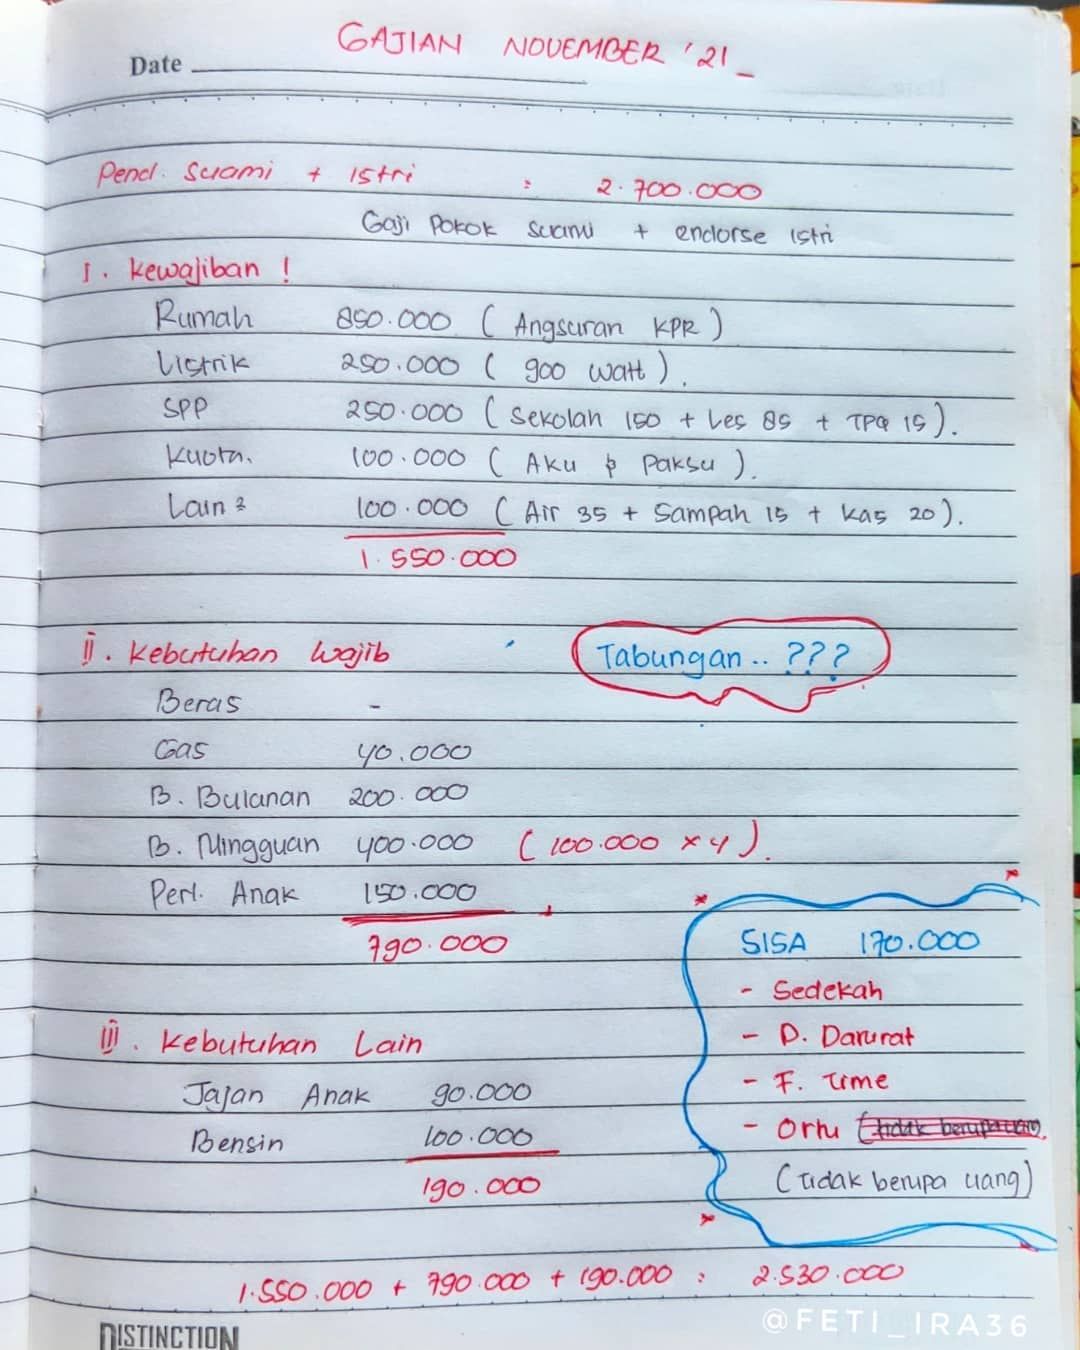 GAJIAN NOVEMBER '21
Date
Pend. Suami + Istri : 2.700.000
Gaji Pokok Suami + endorse Istri
I. Kewajiban !
Rumah 850.000 ( Angsuran KPR )
Listrik 250.000 ( 900 watt ).
SPP 250.000 ( Sekolah 150 + Les 85 + TPQ 15 ).
Kuota. 100.000 ( Aku & Paksu ).
Lain2 100.000 ( Air 35 + Sampah 15 + Kas 20 ).
1.550.000
II. Kebutuhan Wajib
Tabungan.. ???
Beras -
Gas 40.000
B. Bulanan 200.000
B. Mingguan 400.000 ( 100.000 x 4 ).
Perl. Anak 150.000
790.000
SISA 170.000
- Sedekah
- D. Darurat
- F. Time
- Ortu (tidak berupa uang).
(tidak berupa uang)
III. Kebutuhan Lain
Jajan Anak 90.000
Bensin 100.000
190.000
1.550.000 + 790.000 + 190.000 : 2.530.000
DISTINCTION
@FETI_IRA36